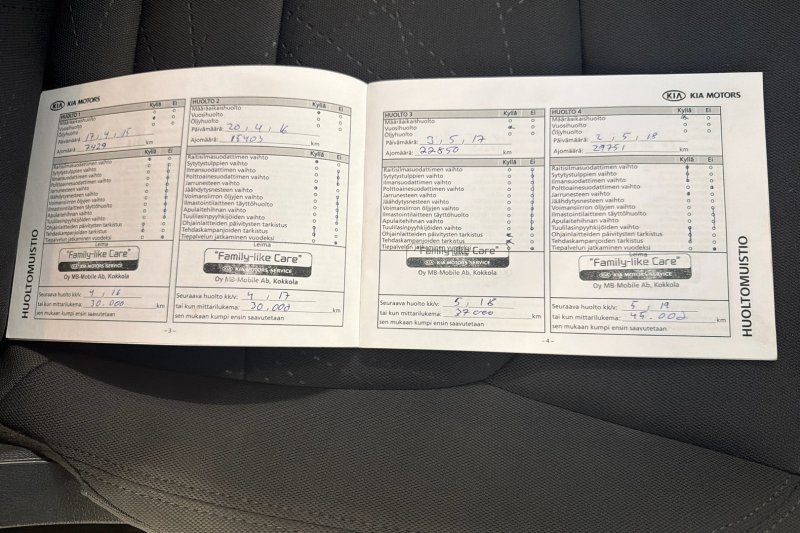 KIA KIA MOTORS
HUOLTO 1
Kyllä Ei
Määräaikaishuolto
Vuosihuolto
Öljyhuolto
Päivämäärä: 17, 4, 15
Ajomäärä: 7429 km
Kyllä Ei
Raitisilmasuodattimen vaihto
Sytytystulppien vaihto
Ilmansuodattimen vaihto
Polttoainesuodattimen vaihto
Jarrunesteen vaihto
Jäähdytysnesteen vaihto
Voimansiirron öljyjen vaihto
Ilmastointilaitteen täyttöhuolto
Apulaitehihnan vaihto
Tuulilasinpyyhkijöiden vaihto
Ohjainlaitteiden päivitysten tarkistus
Tehdaskampanjoiden tarkistus
Tiepalvelun jatkaminen vuodeksi
Leima
"Family-like Care"
KIA MOTORS SERVICE
Oy MB-Mobile Ab, Kokkola
Seuraava huolto kk/v: 4, 16
tai kun mittarilukema: 30.000 km
sen mukaan kumpi ensin saavutetaan
HUOLTO 2
Kyllä Ei
Määräaikaishuolto
Vuosihuolto
Öljyhuolto
Päivämäärä: 20, 4, 16
Ajomäärä: 15403 km
Kyllä Ei
Raitisilmasuodattimen vaihto
Sytytystulppien vaihto
Ilmansuodattimen vaihto
Polttoainesuodattimen vaihto
Jarrunesteen vaihto
Jäähdytysnesteen vaihto
Voimansiirron öljyjen vaihto
Ilmastointilaitteen täyttöhuolto
Apulaitehihnan vaihto
Tuulilasinpyyhkijöiden vaihto
Ohjainlaitteiden päivitysten tarkistus
Tehdaskampanjoiden tarkistus
Tiepalvelun jatkaminen vuodeksi
Leima
"Family-like Care"
KIA MOTORS SERVICE
Oy MB-Mobile Ab, Kokkola
Seuraava huolto kk/v: 4, 17
tai kun mittarilukema: 30.000 km
sen mukaan kumpi ensin saavutetaan
HUOLTOMUISTIO
-3-
KIA KIA MOTORS
HUOLTO 3
Kyllä Ei
Määräaikaishuolto
Vuosihuolto
Öljyhuolto
Päivämäärä: 3, 5, 17
Ajomäärä: 22850 km
Kyllä Ei
Raitisilmasuodattimen vaihto
Sytytystulppien vaihto
Ilmansuodattimen vaihto
Polttoainesuodattimen vaihto
Jarrunesteen vaihto
Jäähdytysnesteen vaihto
Voimansiirron öljyjen vaihto
Ilmastointilaitteen täyttöhuolto
Apulaitehihnan vaihto
Tuulilasinpyyhkijöiden vaihto
Ohjainlaitteiden päivitysten tarkistus
Tehdaskampanjoiden tarkistus
Tiepalvelun jatkaminen vuodeksi
Leima
"Family-like Care"
KIA MOTORS SERVICE
Oy MB-Mobile Ab, Kokkola
Seuraava huolto kk/v: 5, 18
tai kun mittarilukema: 37000 km
sen mukaan kumpi ensin saavutetaan
HUOLTO 4
Kyllä Ei
Määräaikaishuolto
Vuosihuolto
Öljyhuolto
Päivämäärä: 2, 5, 18
Ajomäärä: 29751 km
Kyllä Ei
Raitisilmasuodattimen vaihto
Sytytystulppien vaihto
Ilmansuodattimen vaihto
Polttoainesuodattimen vaihto
Jarrunesteen vaihto
Jäähdytysnesteen vaihto
Voimansiirron öljyjen vaihto
Ilmastointilaitteen täyttöhuolto
Apulaitehihnan vaihto
Tuulilasinpyyhkijöiden vaihto
Ohjainlaitteiden päivitysten tarkistus
Tehdaskampanjoiden tarkistus
Tiepalvelun jatkaminen vuodeksi
Leima
"Family-like Care"
KIA MOTORS SERVICE
Oy MB-Mobile Ab, Kokkola
Seuraava huolto kk/v: 5, 19
tai kun mittarilukema: 45.000 km
sen mukaan kumpi ensin saavutetaan
HUOLTOMUISTIO
-4-